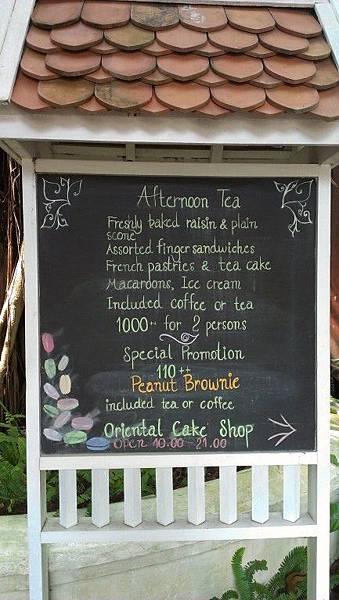 Afternoon Tea
Freshly baked raisin & plain
scone
Assorted finger sandwiches
French pastries & tea cake
Macaroons, Ice cream
Included coffee or tea
1000++ for 2 persons
Special Promotion
110++
Peanut Brownie
included tea or coffee
Oriental Cake Shop
Open 10.00-21.00